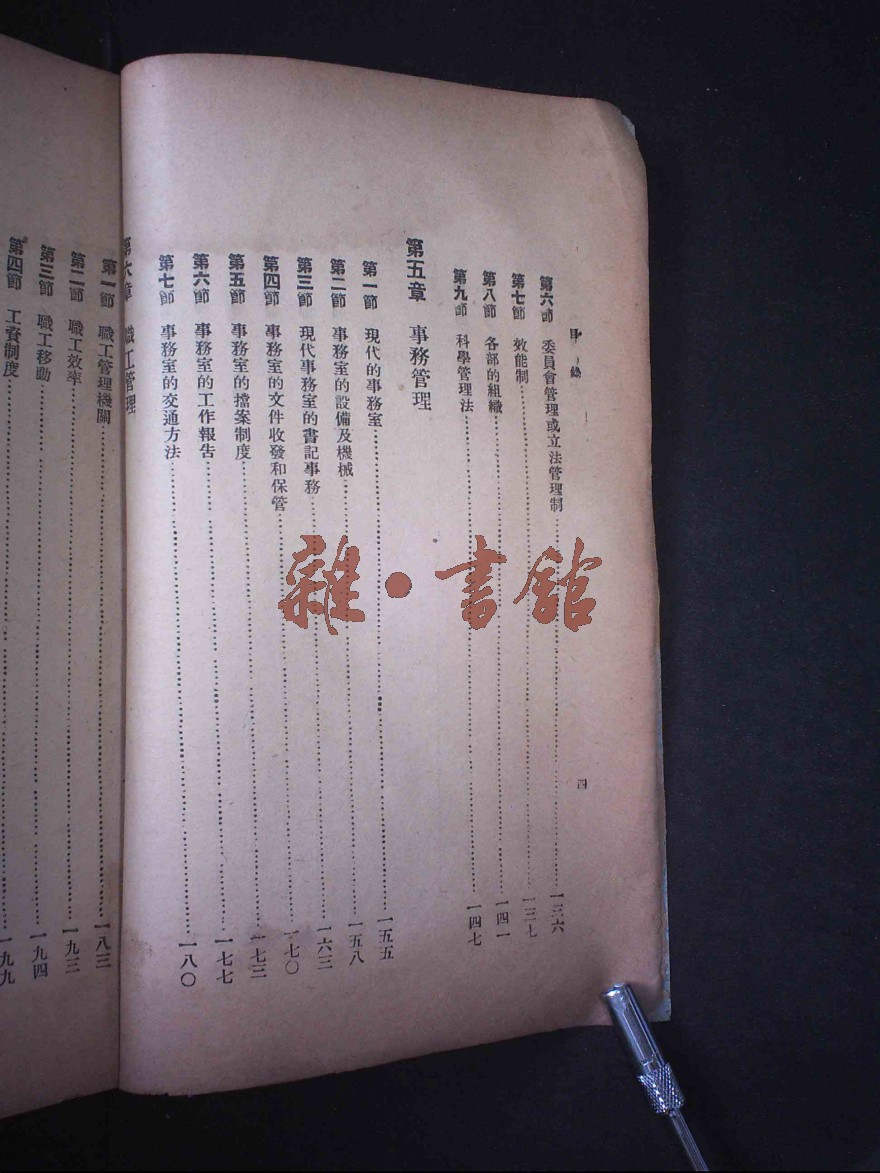 目錄
四
第六節 委員會管理或立法管理制 一三六
第七節 效能制 一三七
第八節 各部的組織 一四一
第九節 科學管理法 一四七
第五章 事務管理
第一節 現代的事務室 一五五
第二節 事務室的設備及機械 一五八
第三節 現代事務室的書記事務 一六三
第四節 事務室的文件收發和保管 一七〇
第五節 事務室的擋案制度 一七三
第六節 事務室的工作報告 一七七
第七節 事務室的交通方法 一八〇
第六章 職工管理
第一節 職工管理機關 一八三
第二節 職工效率 一九三
第三節 職工移動 一九四
第四節 工資制度 一九九
雜·書館